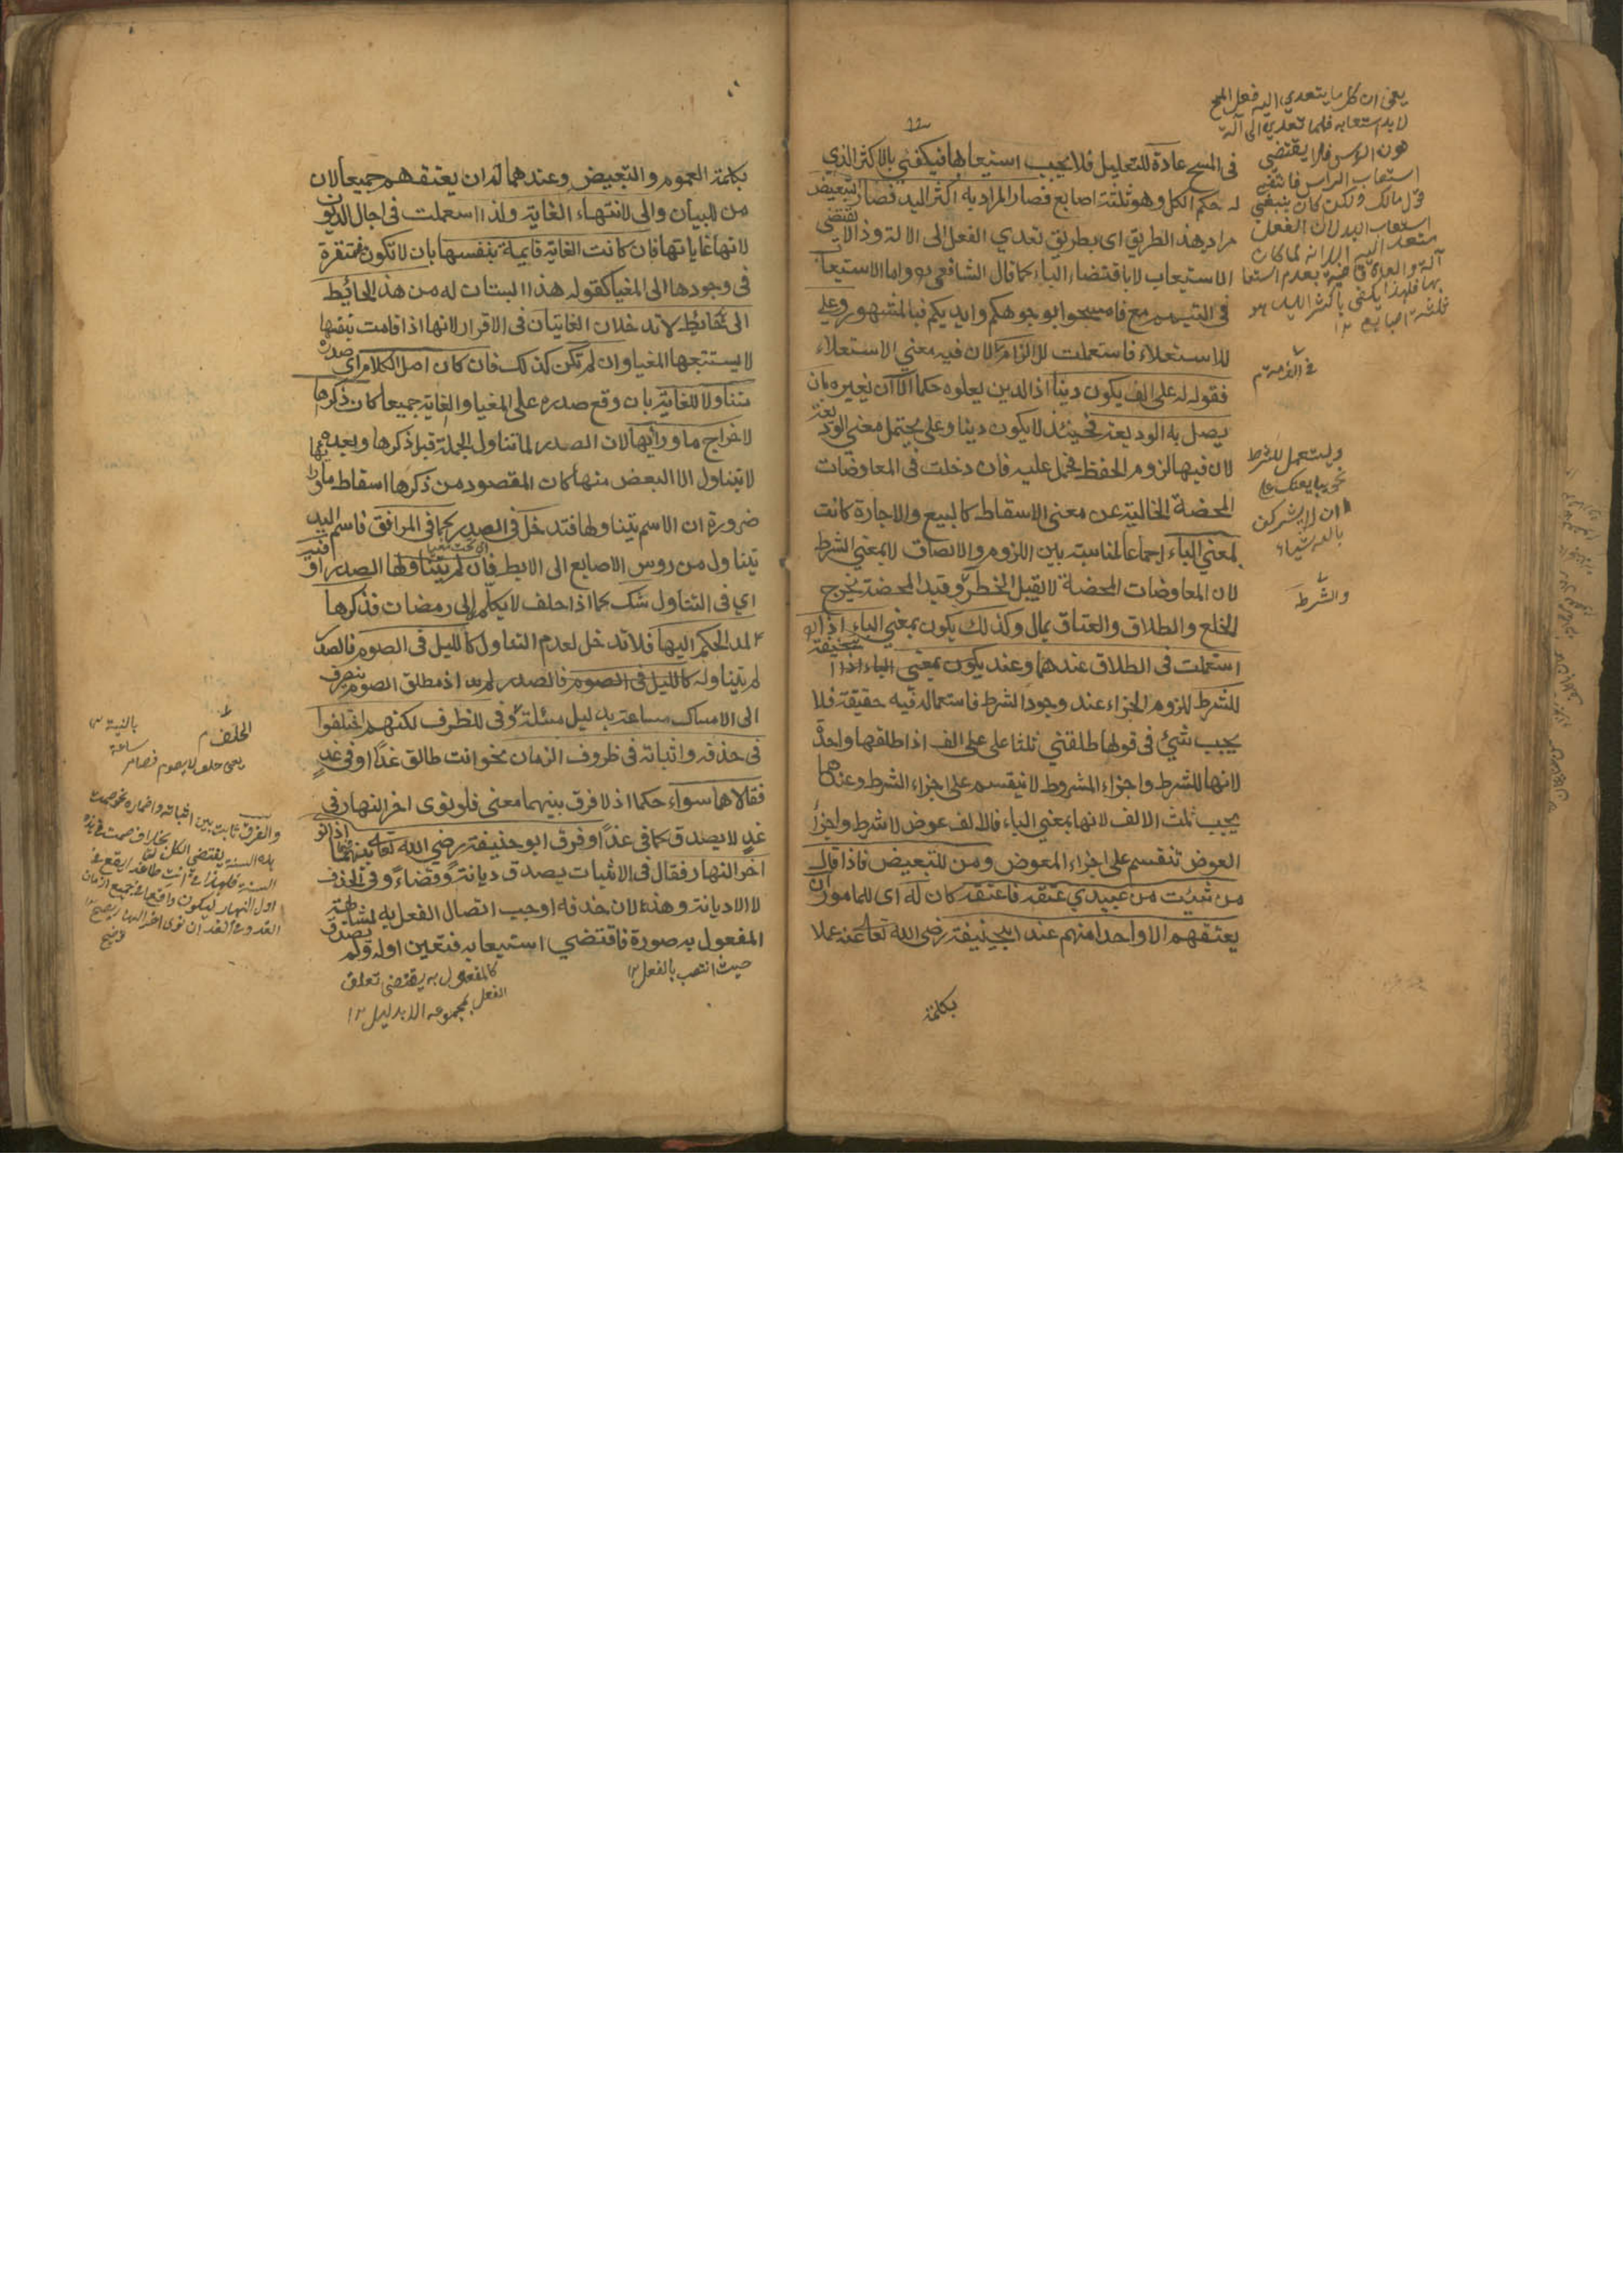 في المسح عادة للتعليل فلا يجب استيعابها فيكفي بالاكثر الذي
له حكم الكل وهو ثلثة اصابع فصار المراد به اكثر اليد فصار التبعيض
مراد بهذ الطريق اي بطريق تعدي الفعل الى الالة وذا لا يقتضي
الاستيعاب لا باقتضاء الباء كما قال الشافعي واما الاستيعاب
في التيمم مع فامسحوا بوجوهكم وايديكم فبالمشهور وعلى
للاستعلاء فاستعملت للالزام لان فيه معنى الاستعلاء
فقوله له على الف يكون دينا اذ الدين يعلوه حكما الا ان يغيره بان
يصل به الوديعة فحينئذ لا يكون دينا وعلى يحتمل معنى الوديعة
لان فيها لزوم الحفظ فحمل عليه فان دخلت في المعاوضات
المحضة الخالية عن معنى الاسقاط كالبيع والاجارة كانت
بمعنى الباء اجماعا لمناسبة بين اللزوم والالصاق لا بمعنى الشرط
لان المعاوضات المحضة لا يقبل الخطر وقيد المحضة يخرج
الخلع والطلاق والعتاق بمال وكذلك يكون بمعنى الباء اذا
استعملت في الطلاق عندهما وعند يكون بمعنى الباء اذا
للشرط للزوم الجزاء عند وجود الشرط فاستعماله فيه حقيقة فلا
يجب شيئ في قولها طلقني ثلثا على الف اذا طلقها واحدة
لانها للشرط واجزاء المشروط لا ينقسم على اجزاء الشرط وعندهما
يجب ثلث الالف لانها بمعنى الباء فالالف عوض لا شرط واجزاء
العوض تنقسم على اجزاء المعوض ومن للتبعيض فاذا قال
من شئت من عبيدي عتقه فاعتقه كان له اى للمامور ان
يعتقهم الا واحدا منهم عند ابيحنيفة رضي الله تعالى عنه عملا
بكلمة
يعني ان كل ما يتعدى اليه فعل المسح
لا بد استيعابه فلما تعدى الى آلة
دون الراس فلا يقتضي
استيعاب الراس فانتفى
قول مالك ولكن كان ينبغي
استيعاب اليد لان الفعل
وليستعمل للشرط
نحو يبايعنك على
ان لا يشركن
بالله شيئا
والشرط
بكلمة العموم والتبعيض وعندهما له ان يعتقهم جميعا لان
من للبيان والى لانتهاء الغاية ولذا استعملت في اجال الديون
لانها غاياتها فان كانت الغاية قايمة بنفسها بان لا تكون مفتقرة
في وجودها الى المغيا كقوله هذا البستان له من هذ الحائط
الى هذا الحائط لا تدخلان الغايتان في الاقرار لانها اذا قامت بنفسها
لا يستتبعها المغيا وان لم تكن كذلك فان كان اصل الكلام اي صدره
متناولا للغاية بان وقع صدره على المغيا والغاية جميعا كان ذكرها
لاخراج ماورائها لان الصدر لما تناول الجملة قبل ذكرها وبعد
لا يتناول الا البعض منها كان المقصود من ذكرها اسقاط ماورائها
ضرورة ان الاسم يتناولها فتدخل في الصدر كما في المرافق فاسم اليد
يتناول من روس الاصابع الى الابط فان لم يتناولها الصدر او فيه
اي في التناول شك كما اذا حلف لا يكلم الى رمضان فذكرها
لمد الحكم اليها فلا تدخل لعدم التناول كالليل في الصوم فالصدر
لم يتناوله كالليل في الصوم فالصدر اذ مطلق الصوم ينصرف
الى الامساك ساعة بدليل مسئلة الحلف وفي للظرف لكنهم اختلفوا
في حذفه واثباته في ظروف الزمان نحو انت طالق غدا او في غد
فقالا هما سواء حكما اذ لا فرق بينهما معنى فلو نوى اخر النهار في
غد لا يصدق كما في غدا وفرق ابو حنيفة رضي الله تعالى بينهما اذا نوى
اخر النهار فقال في الاثبات يصدق ديانة وقضاء وفي الحذف
لا الا ديانة وهذا لان حذفه اوجب اتصال الفعل به لمشابهة
المفعول به صورة فاقتضي استيعابه فتعين اوله ولم يصدق
حيث انتصب بالفعل ١٢
كالمفعول به يقتضي تعلق
الفعل بمجموعه الا بدليل ١٢
الحلف م
يعني حلف لا يصوم فصام ساعة
بالنية
والفرق ثابت بين اثباته واضماره نحو صمت
هذه السنة يقتضي الكل بخلاف صمت في هذه